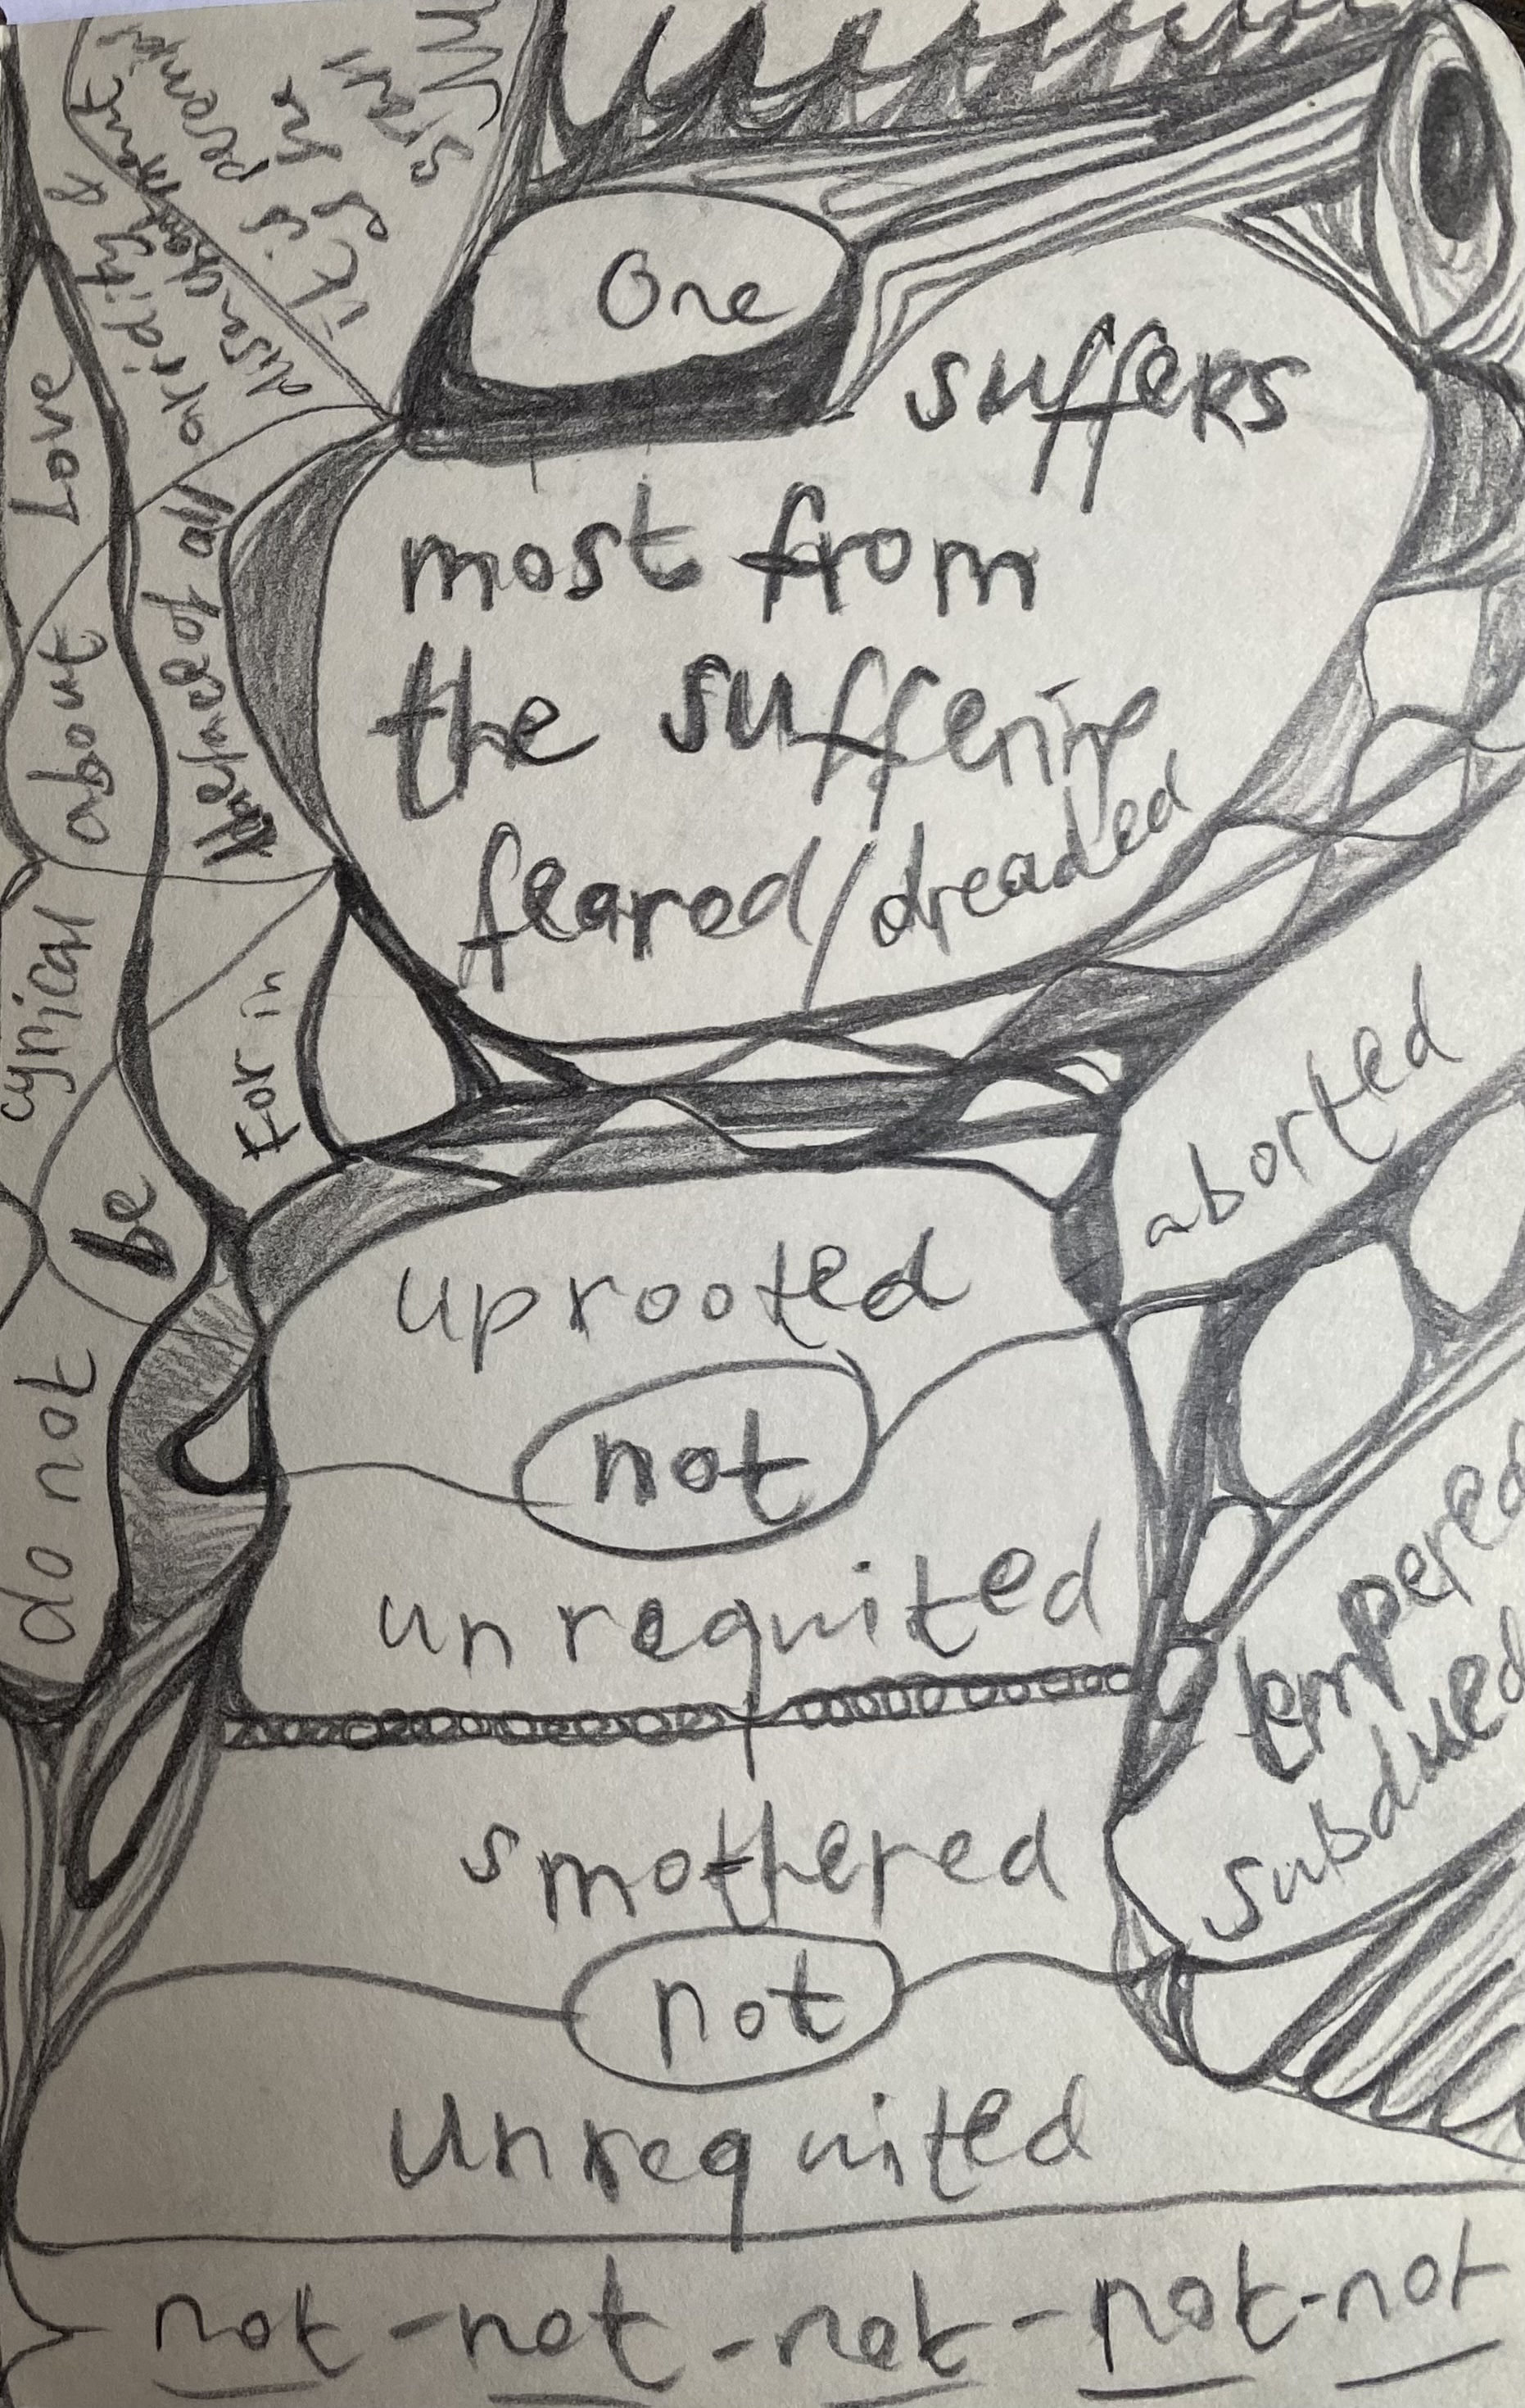 One
suffers
most from
the suffering
feared/dreaded
aborted
uprooted
not
unrequited
tempered
subdued
smothered
not
unrequited
not - not - not - not - not
do not
be
cynical
about
Love
For in
the face of all
aridity &
disenchantment
it is
as